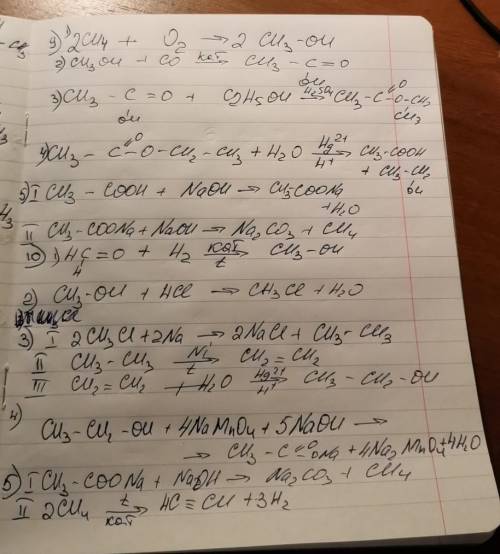 9) 1) 2CH4 + O2 → 2 CH3-OH
2) CH3OH + CO кат→ CH3 - C = O
OH
3) CH3 - C = O + C2H5OH H2SO4→ CH3-C=O-O-CH2
OH CH3
4) CH3 - C=O-O-CH2-CH3 + H2O Hg2+ H+→ CH3-COOH
+ CH3-CH2
OH
5) I CH3 - COOH + NaOH → CH3COONa
+H2O
II CH3-COONa + NaOH → Na2CO3 + CH4
10) 1) HC=O + H2 кат t→ CH3-OH
H
2) CH3-OH + HCl → CH3Cl + H2O
3) I 2CH3Cl + 2Na → 2NaCl + CH3-CH3
II CH3-CH3 Ni t→ CH2=CH2
III CH2=CH2 + H2O Hg2+ H+→ CH3-CH2-OH
4)
CH3-CH2-OH + 4NaMnO4 + 5NaOH →
→ CH3-C=O ONa + 4Na2MnO4 + 4H2O
5) I CH3-COONa + NaOH → Na2CO3 + CH4
II 2CH4 t кат→ HC≡CH + 3H2